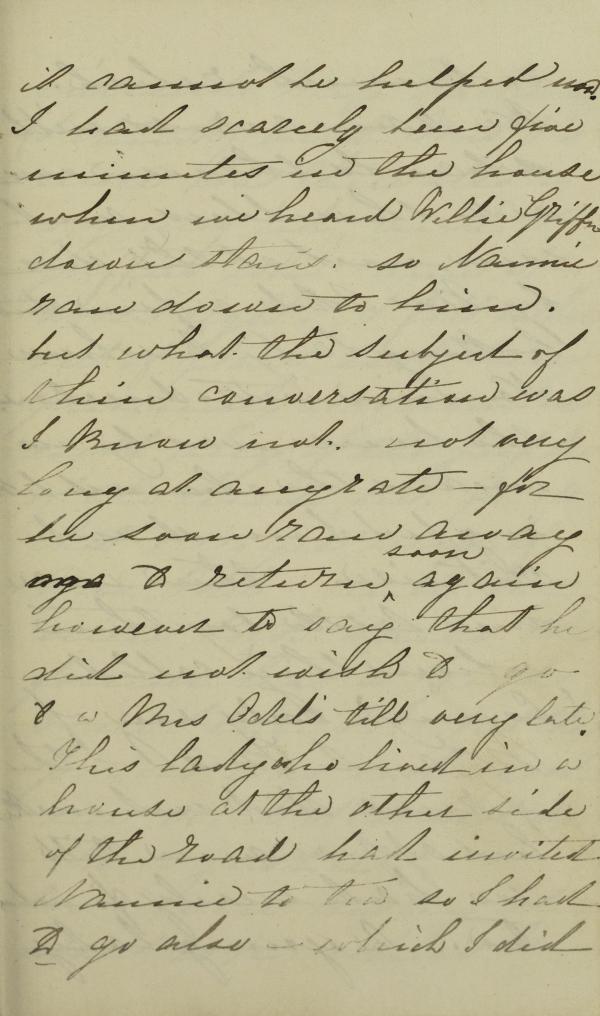 it cannot be helped now.
I had scarcely been five
minutes in the house
when we heard Willie Griffin
down stairs. so Nannie
ran down to him.
but what the subject of
thier conversation was
I know not. not very
long at anyrate – for
he soon ran away
to return soon again
however to say that he
did not wish to go
to a Mrs Odell's till very late.
This lady who lived in a
house at the other side
of the road had invited
Nannie to tea so I had
to go also – which I did